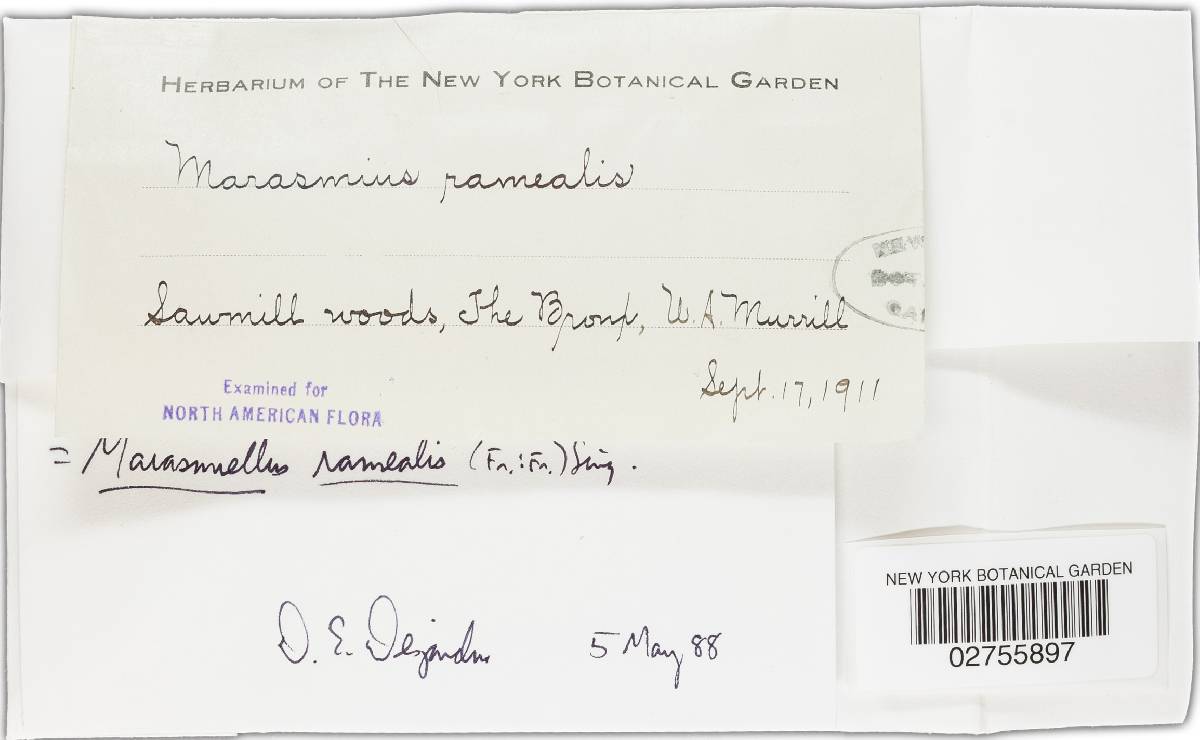 HERBARIUM OF THE NEW YORK BOTANICAL GARDEN
Marasmius ramealis
NEW
BOT
GAR
Sawmill woods, The Bronx, W. A. Murrill
Sept. 17, 1911
Examined for
NORTH AMERICAN FLORA
= Marasmiellus ramealis (Fr.:Fr.) Sing.
D. E. Desjardin
5 May 88
NEW YORK BOTANICAL GARDEN
02755897